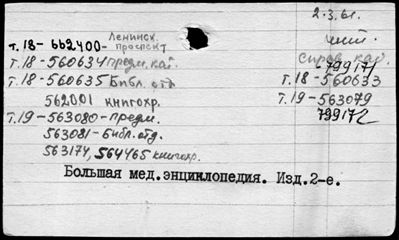 2.3.61.
т.18-662400- Ленинск. проспект
чит.
т.18-560634 предм.кат. справ. каб.
799171
т.18-560635 Библ. отд. т.18-560633
562001 книгохр. т.19-563079
т.19-563080-предм. 799172
563081-библ.отд.
563174, 564465 книгохр.
Большая мед.энциклопедия. Изд.2-е.